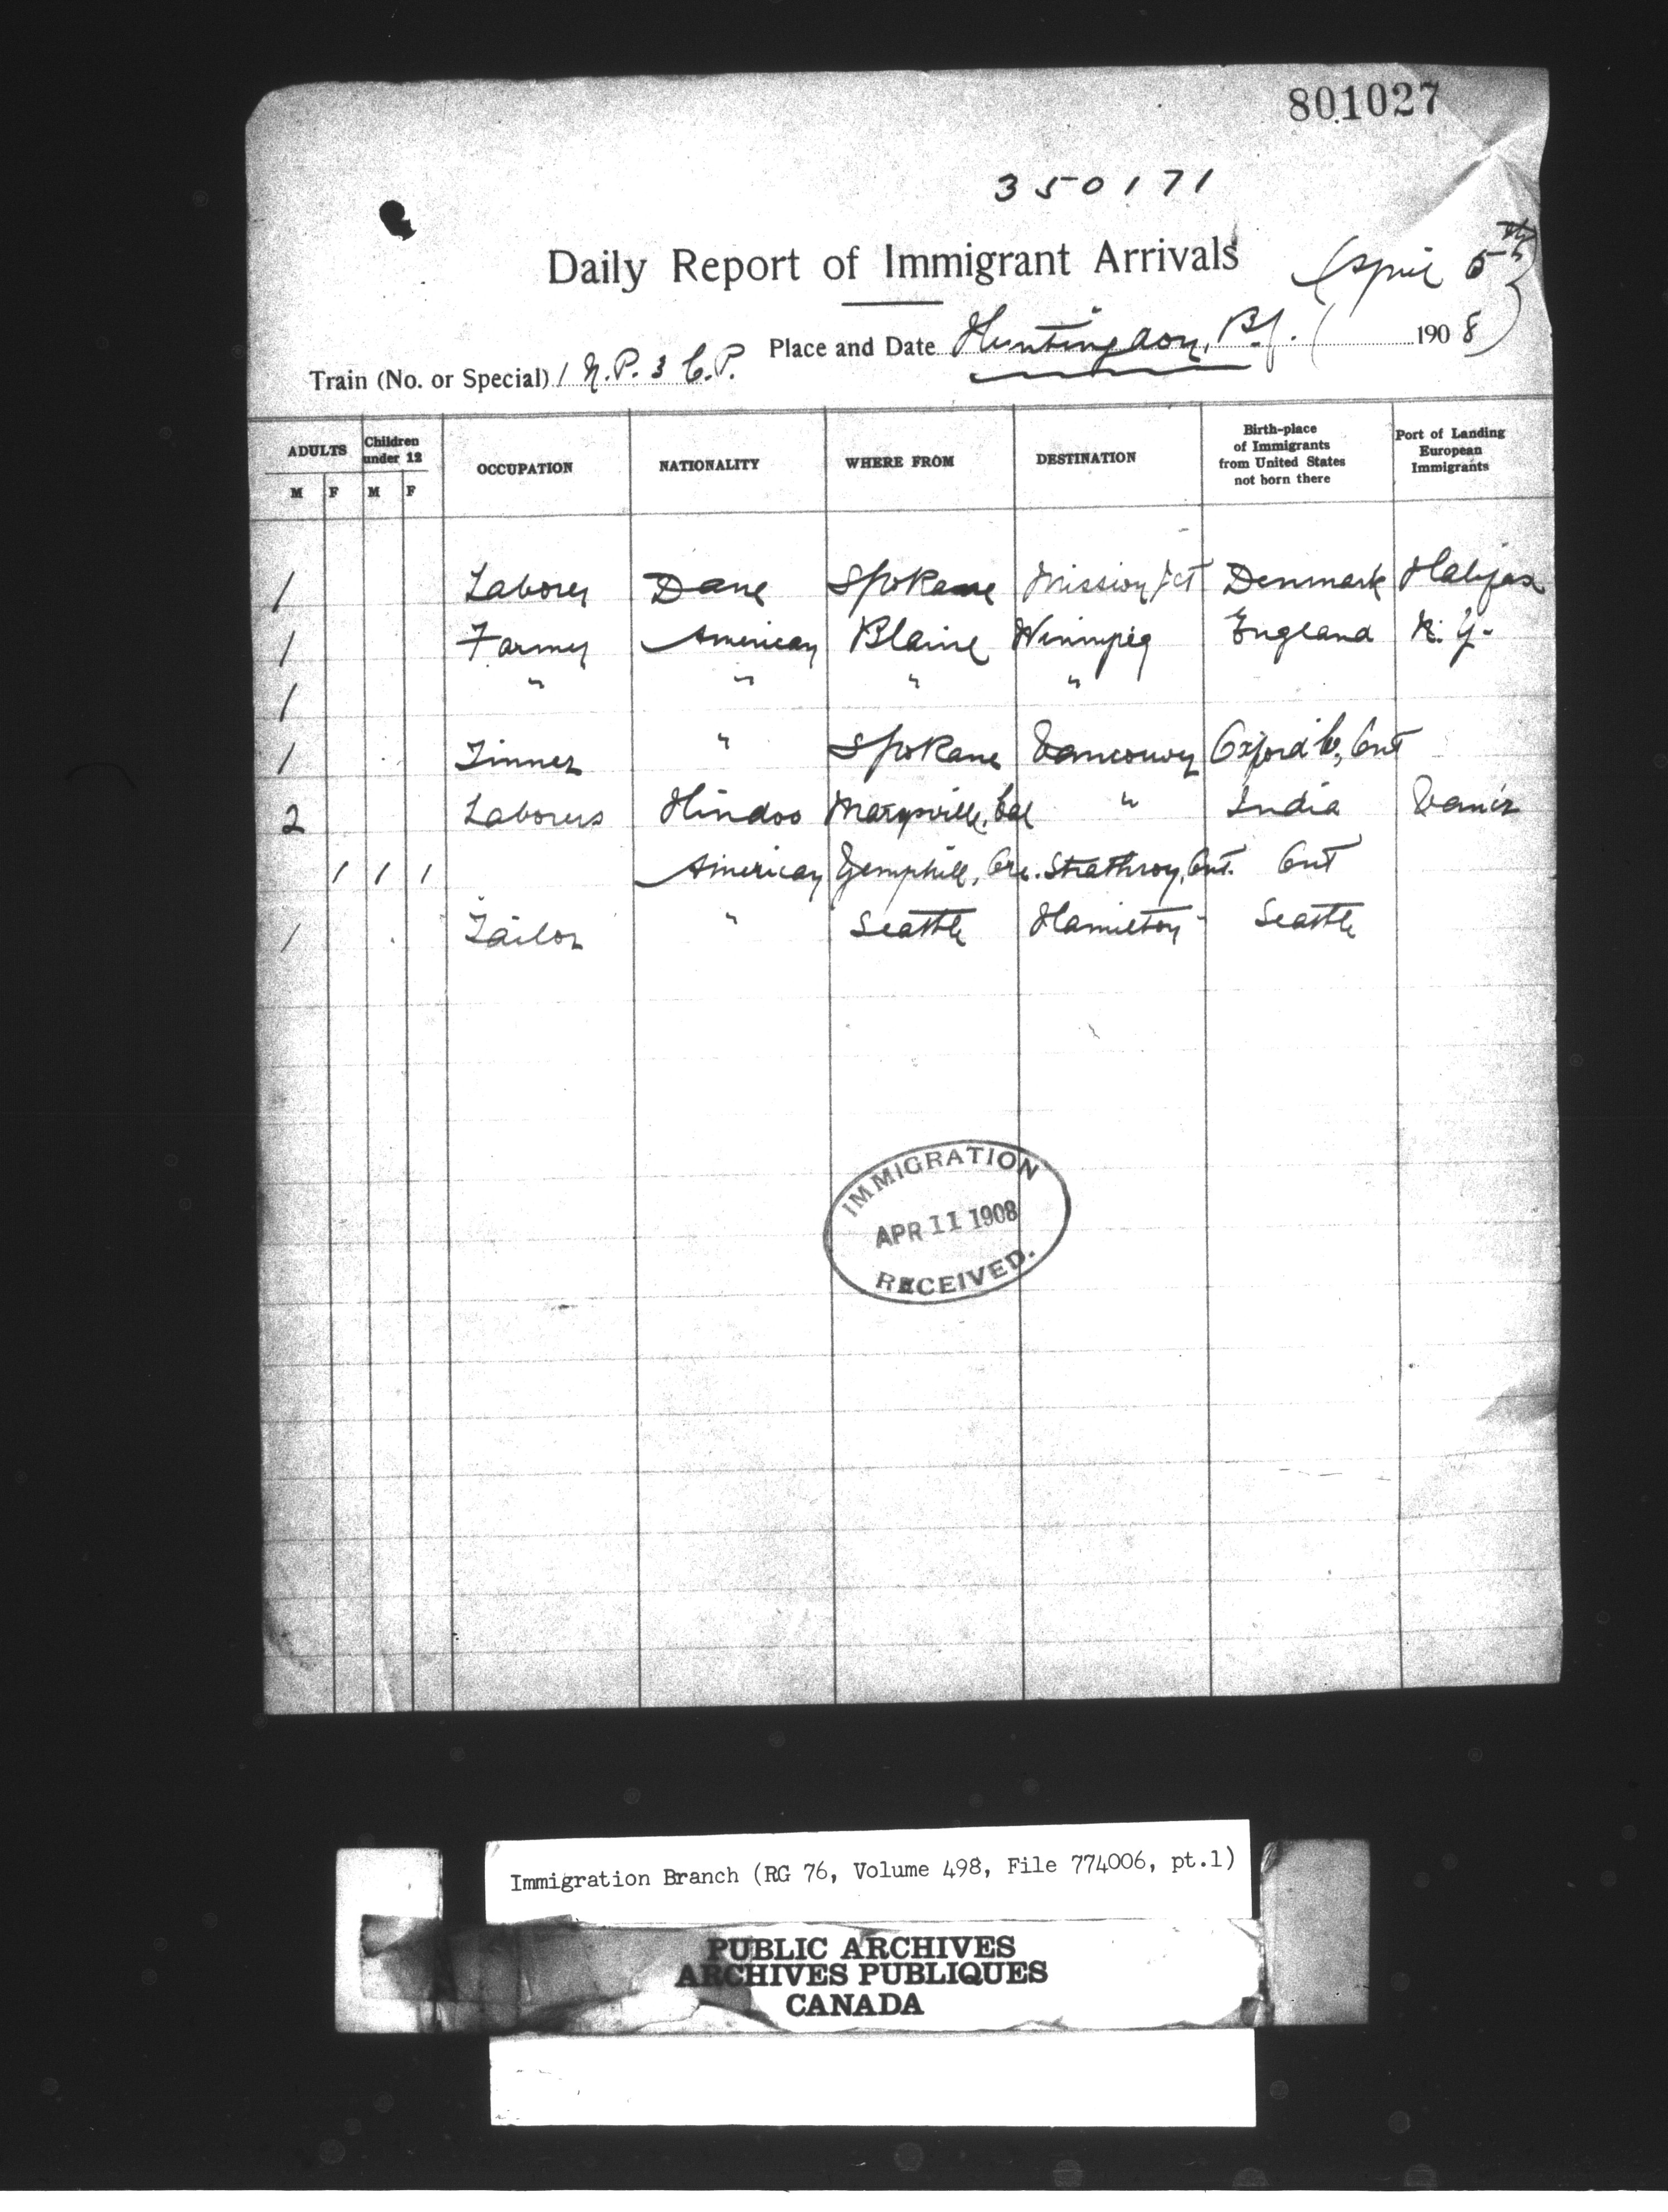 801027
350171
Daily Report of Immigrant Arrivals
April 5th
Place and Date Huntingdon, B.C. 1908
Train (No. or Special) 1 N.P. 3 C.P.
ADULTS Children under 12 OCCUPATION NATIONALITY WHERE FROM DESTINATION Birth-place of Immigrants from United States not born there Port of Landing European Immigrants
M F M F
1 Laborer Dane Spokane Mission Jct Denmark Halifax
1 Farmer American Blaine Winnipeg England N.Y.
1 " " " "
1 Tinner " Spokane Vancouver Oxford Co, Ont
2 Laborers Hindoo Marysville, Cal " India Vancr
1 1 1 American Ore. Strathroy, Ont. Ont
1 Tailor " Seattle Hamilton Seattle
IMMIGRATION
APR 11 1908
RECEIVED.
Immigration Branch (RG 76, Volume 498, File 774006, pt.1)
PUBLIC ARCHIVES
ARCHIVES PUBLIQUES
CANADA